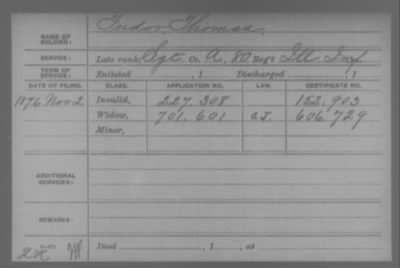 Tudor Thomas.
NAME OF SOLDIER:
SERVICE: Late rank, Sgt. Co. A, 80 Reg't Ill. Inf
TERM OF SERVICE: Enlisted , 1 Discharged , 1
DATE OF FILING. CLASS. APPLICATION NO. LAW. CERTIFICATE NO.
1876 Nov 2 Invalid, 227.308 152.903
Widow, 701.601 606.729
Minor,
ADDITIONAL SERVICES:
REMARKS:
Died , 1 , at